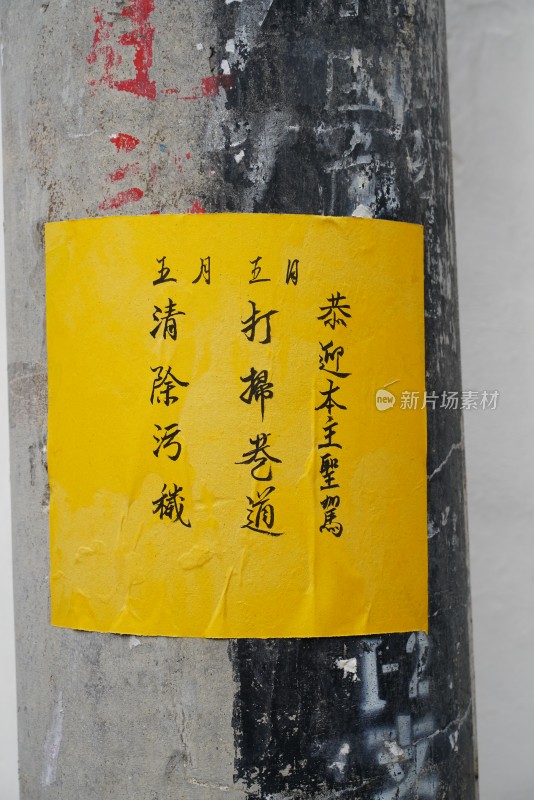 恭迎本主聖駕
五月五日
打掃巷道
清除污穢
new 新片场素材